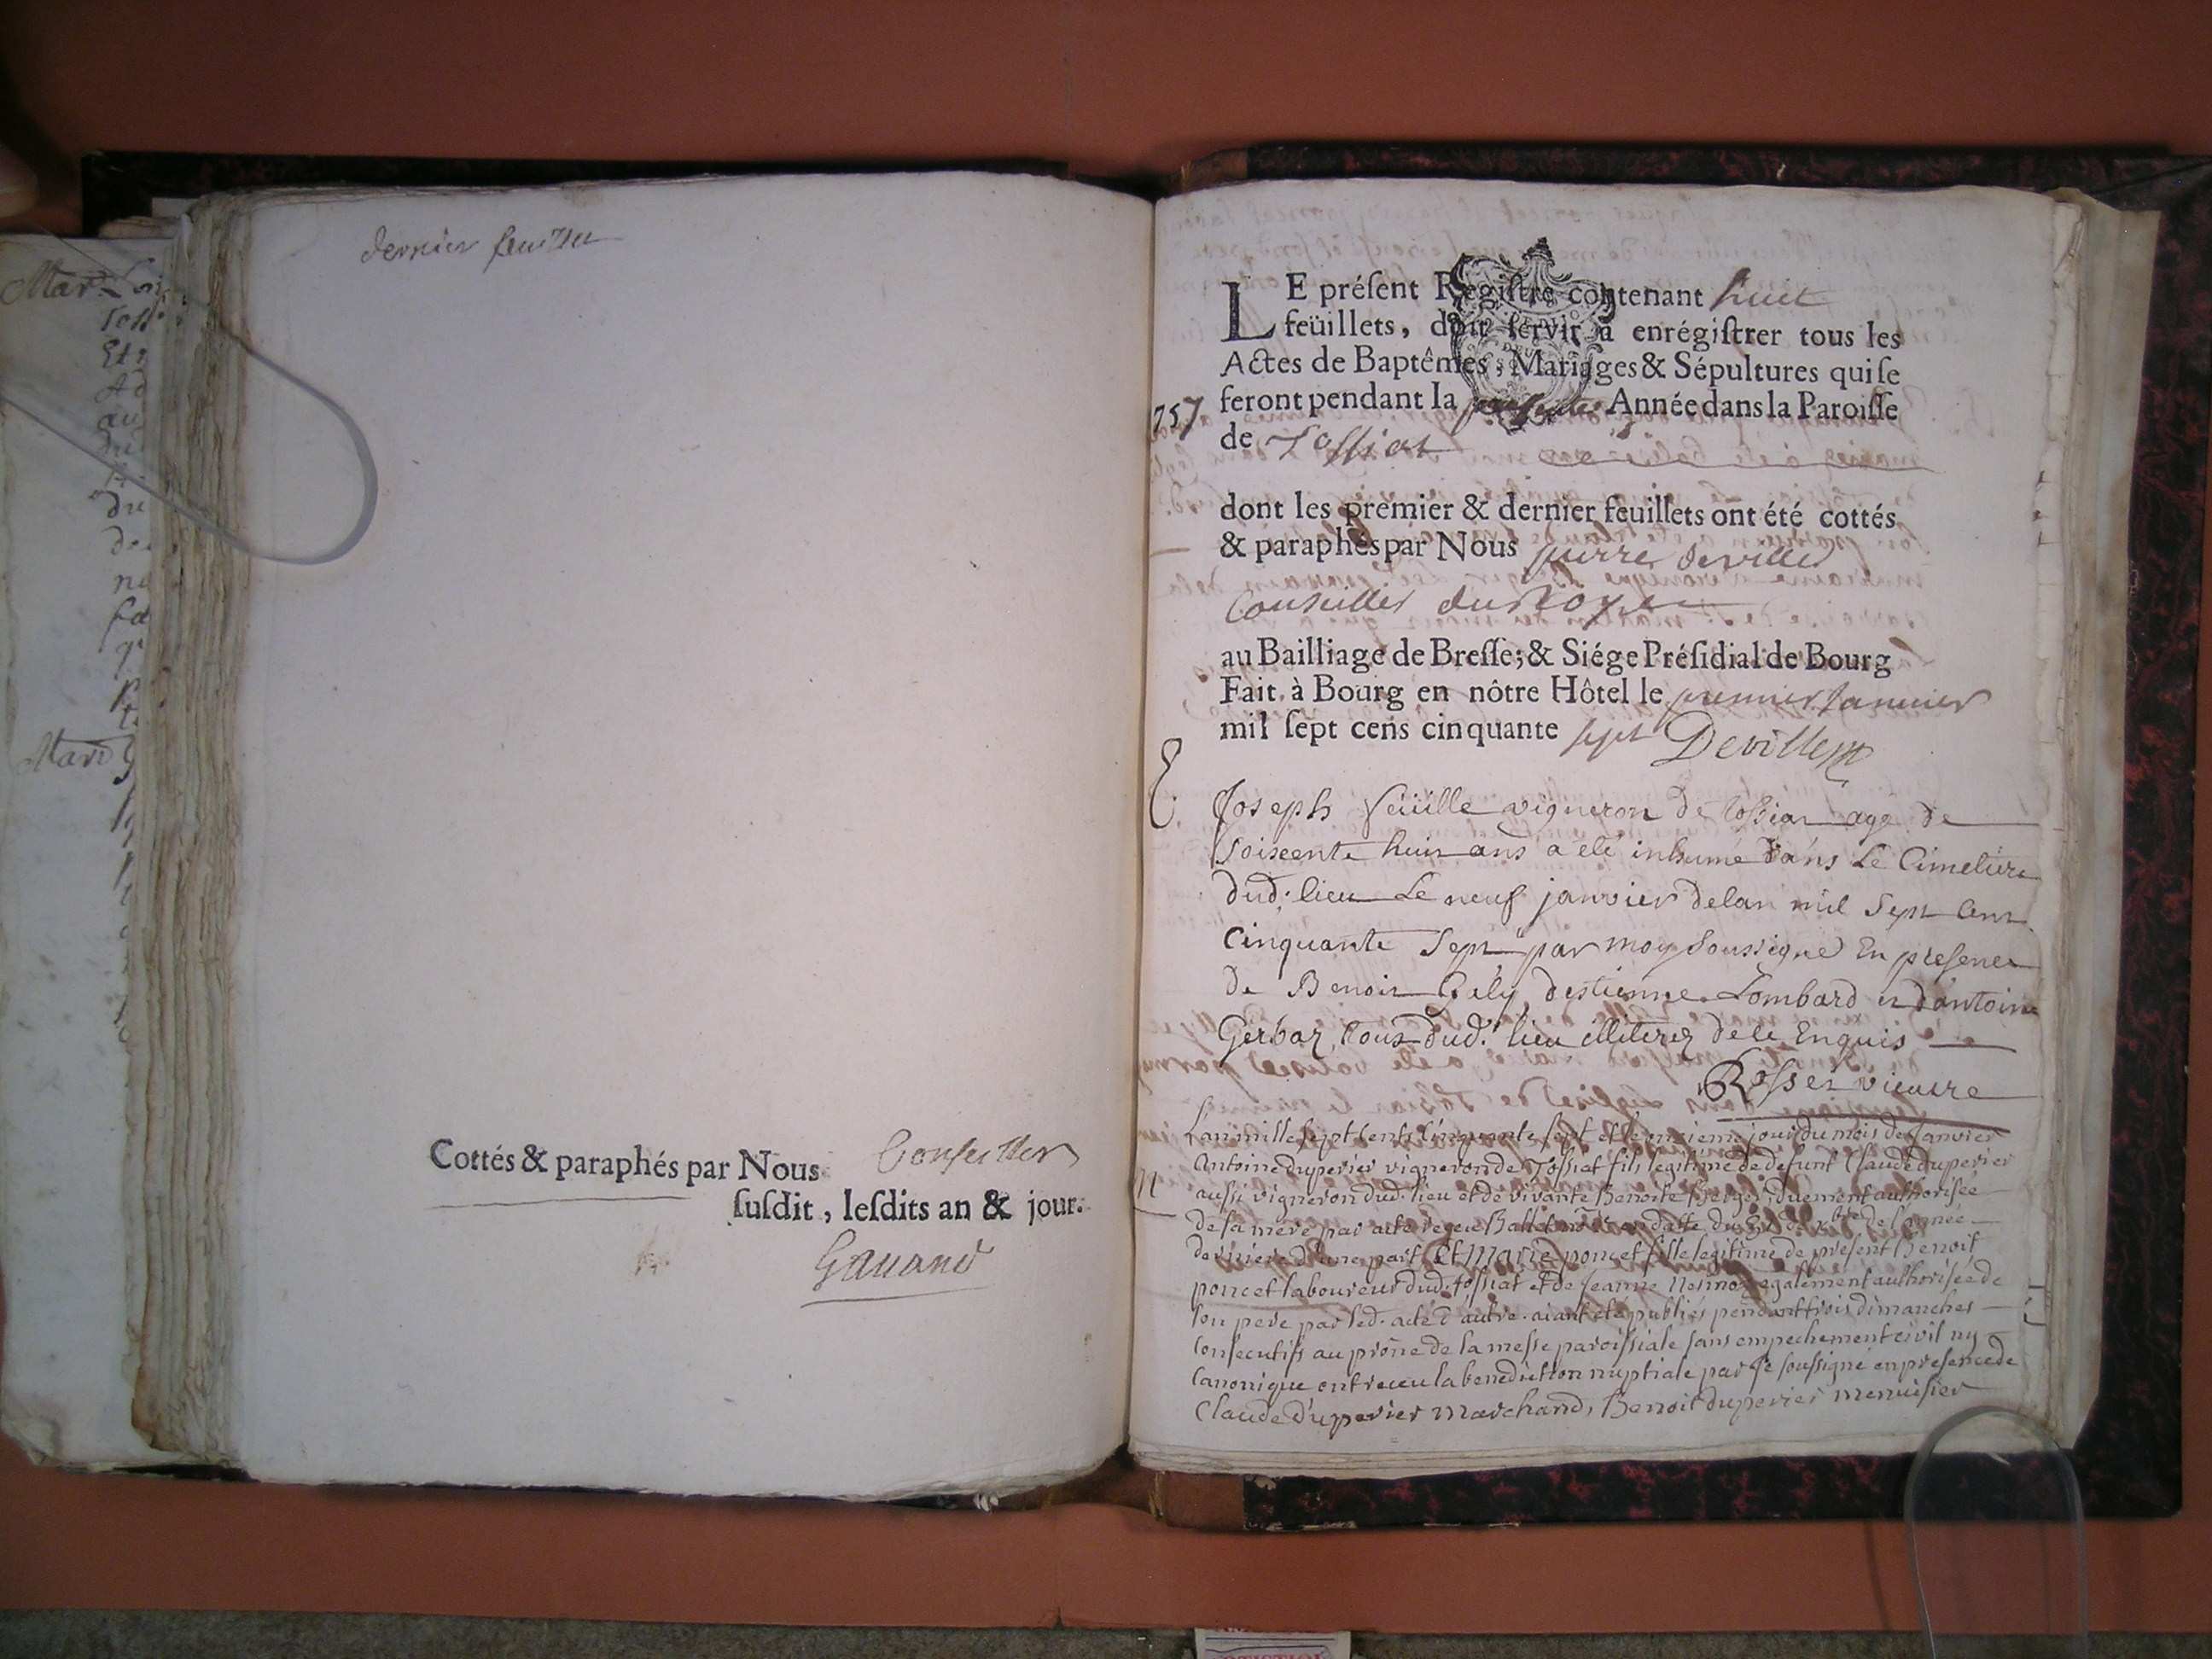 dernier feuillet
Cottés & paraphés par Nous Conseiller
susdit, lesdits an & jour.
Gauand
Mar.
Mar
LE présent Registre contenant huit
feüillets, doit servir à enrégistrer tous les
Actes de Baptêmes, Mariages & Sépultures qui se
feront pendant la presente Année dans la Paroisse
1757
de Tossiat
dont les premier & dernier feuillets ont été cottés
& paraphés par Nous pierre deviller
Conseiller du Roy
au Bailliage de Bresse; & Siége Présidial de Bourg
Fait à Bourg en nôtre Hôtel le premier Januier
mil sept cens cinquante sept Deviller
E.
Joseph feüille vigneron de tossiat agé de
soixente huit ans a été inhumé dans Le Cimetiere
dud. lieu Le neuf janvier de lan mil Sept Cent
Cinquante Sept par moy Soussigné En presence
De Benoit Goly d'estienne Lombard et d'antoine
Gerbaz, tous dud. lieu illiterez de ce Enquis
Rosset vicaire
L'an mille sept cents cinquante sept et le onzieme jour du mois de Janvier
Antoine duperier vigneron de Tossiat fils legitime de defunt Claude duperier
M
aussi vigneron dud. lieu et de vivante Benoite Berger, duement authorisée
de sa mere par acte reçeu Ballet en datte du de xbre de l'année
derniere d'une part Et Marie poncet fille legitime de present Benoit
poncet laboureur dud. Tossiat et de Jeanne egalement authorisée de
son pere par led. acte d'autre. aiant été publiés pendant trois dimanches
consecutifs au prône de la messe paroissiale sans empechement civil ny
Canonique ont receu la benediction nuptiale par je soussigné en presence de
Claude duperier Marchand, Benoit duperier menuisier